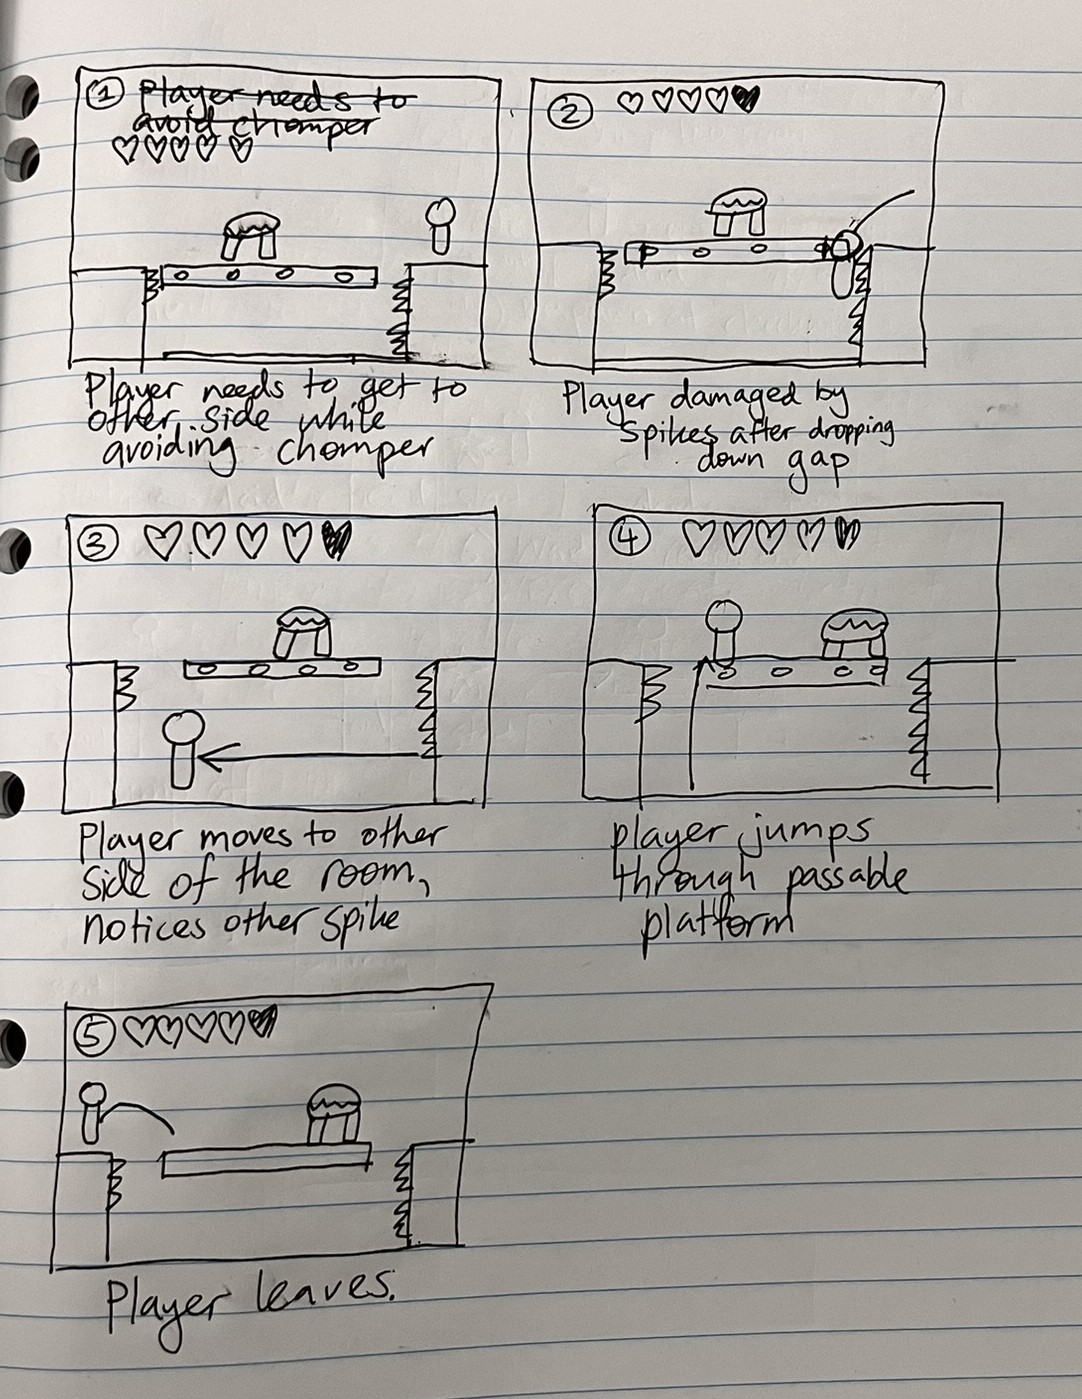 ① Player needs to
avoid chomper
Player needs to get to
other side while
avoiding chomper
②
Player damaged by
spikes after dropping
down gap
③
Player moves to other
side of the room,
notices other spike
④
player jumps
through passable
platform
⑤
Player leaves.